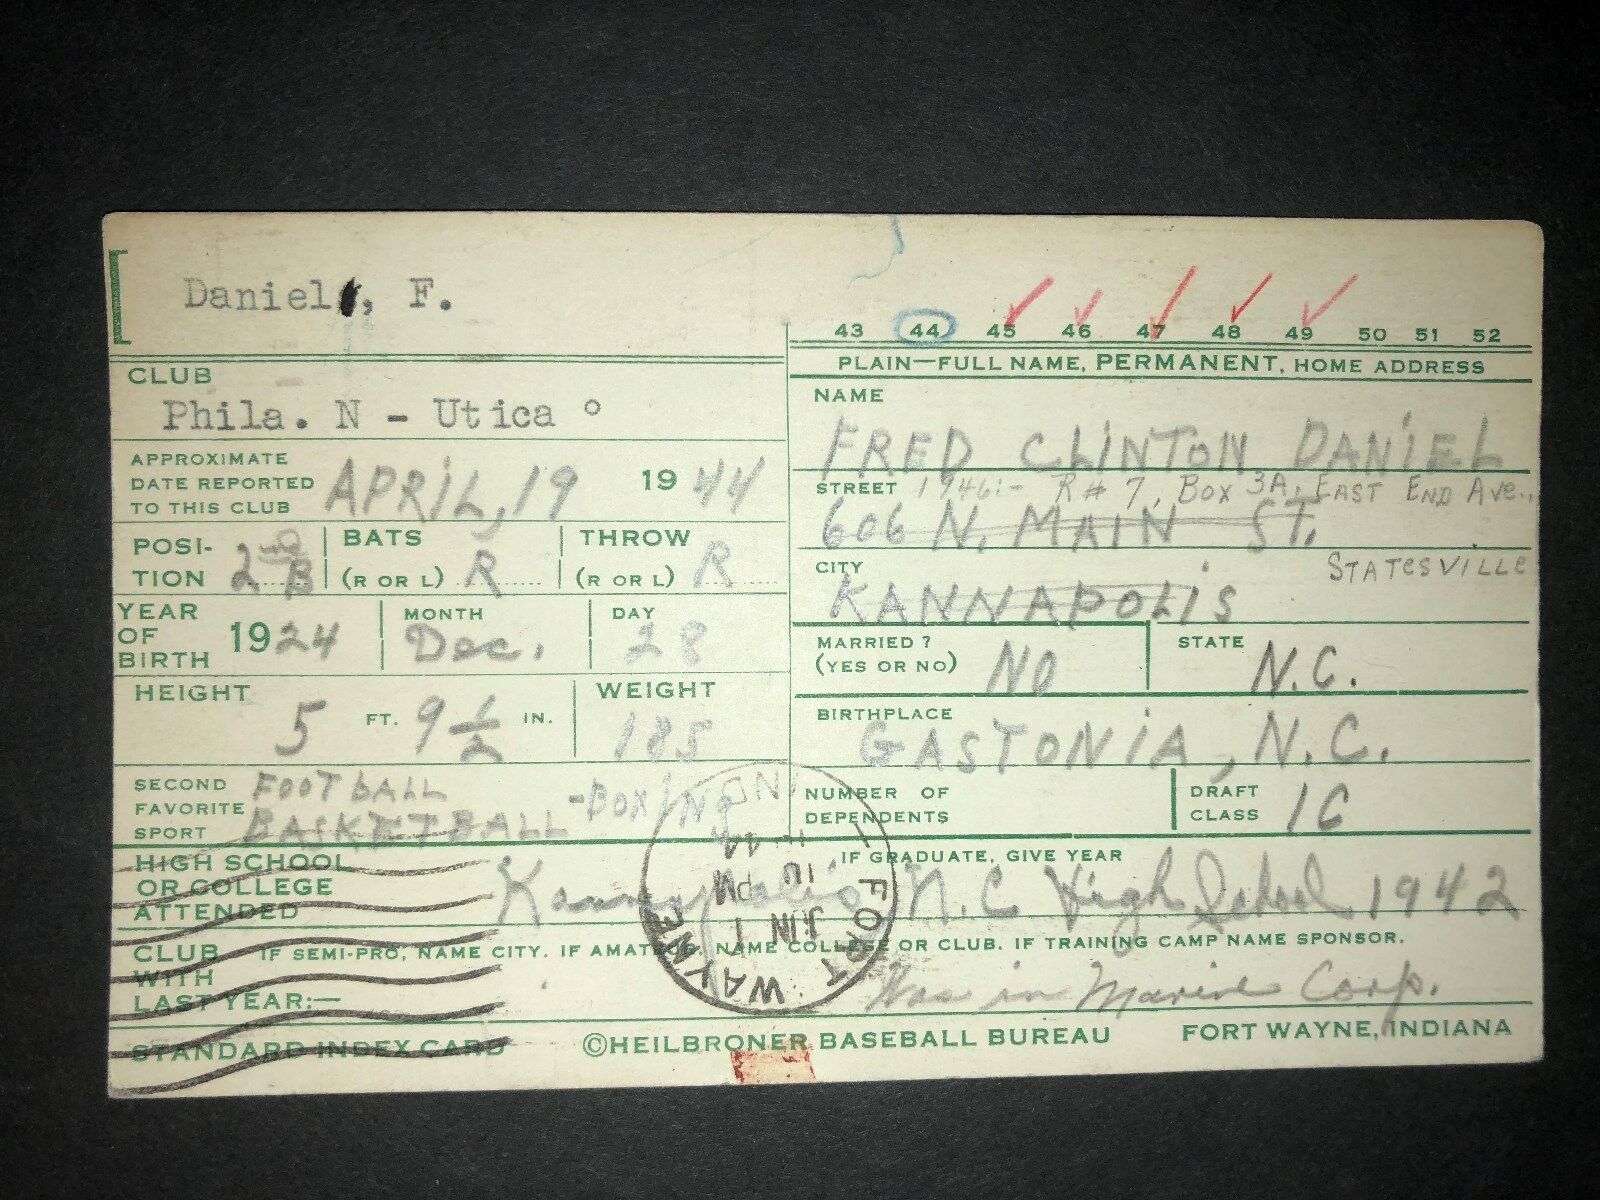 Daniel, F.
43 44 45 46 47 48 49 50 51 52
PLAIN—FULL NAME, PERMANENT, HOME ADDRESS
CLUB
Phila. N - Utica °
NAME
FRED CLINTON DANIEL
APPROXIMATE
DATE REPORTED
TO THIS CLUB
APRIL, 19 1944
STREET 1946:- R#7, Box 3A, EAST END AVE.,
606 N. MAIN ST.
POSI-
TION 2ND B
BATS
(R OR L) R
THROW
(R OR L) R
CITY STATESVILLE
KANNAPOLIS
YEAR
OF
BIRTH 1924
MONTH
Dec.
DAY
28
MARRIED?
(YES OR NO) NO
STATE
N.C.
HEIGHT
5 FT. 9 1/2 IN.
WEIGHT
185
BIRTHPLACE
GASTONIA, N.C.
SECOND
FAVORITE
SPORT
FOOTBALL
BASKETBALL -BOXING
NUMBER OF
DEPENDENTS
DRAFT
CLASS 1C
HIGH SCHOOL
OR COLLEGE
ATTENDED
IF GRADUATE, GIVE YEAR
Kannapolis N.C High School 1942
CLUB
WITH
LAST YEAR:—
IF SEMI-PRO, NAME CITY. IF AMATEUR, NAME COLLEGE OR CLUB. IF TRAINING CAMP NAME SPONSOR.
Was in Marine Corp.
STANDARD INDEX CARD ©HEILBRONER BASEBALL BUREAU FORT WAYNE, INDIANA
FORT WAYNE
IND
JUN 1
10 PM